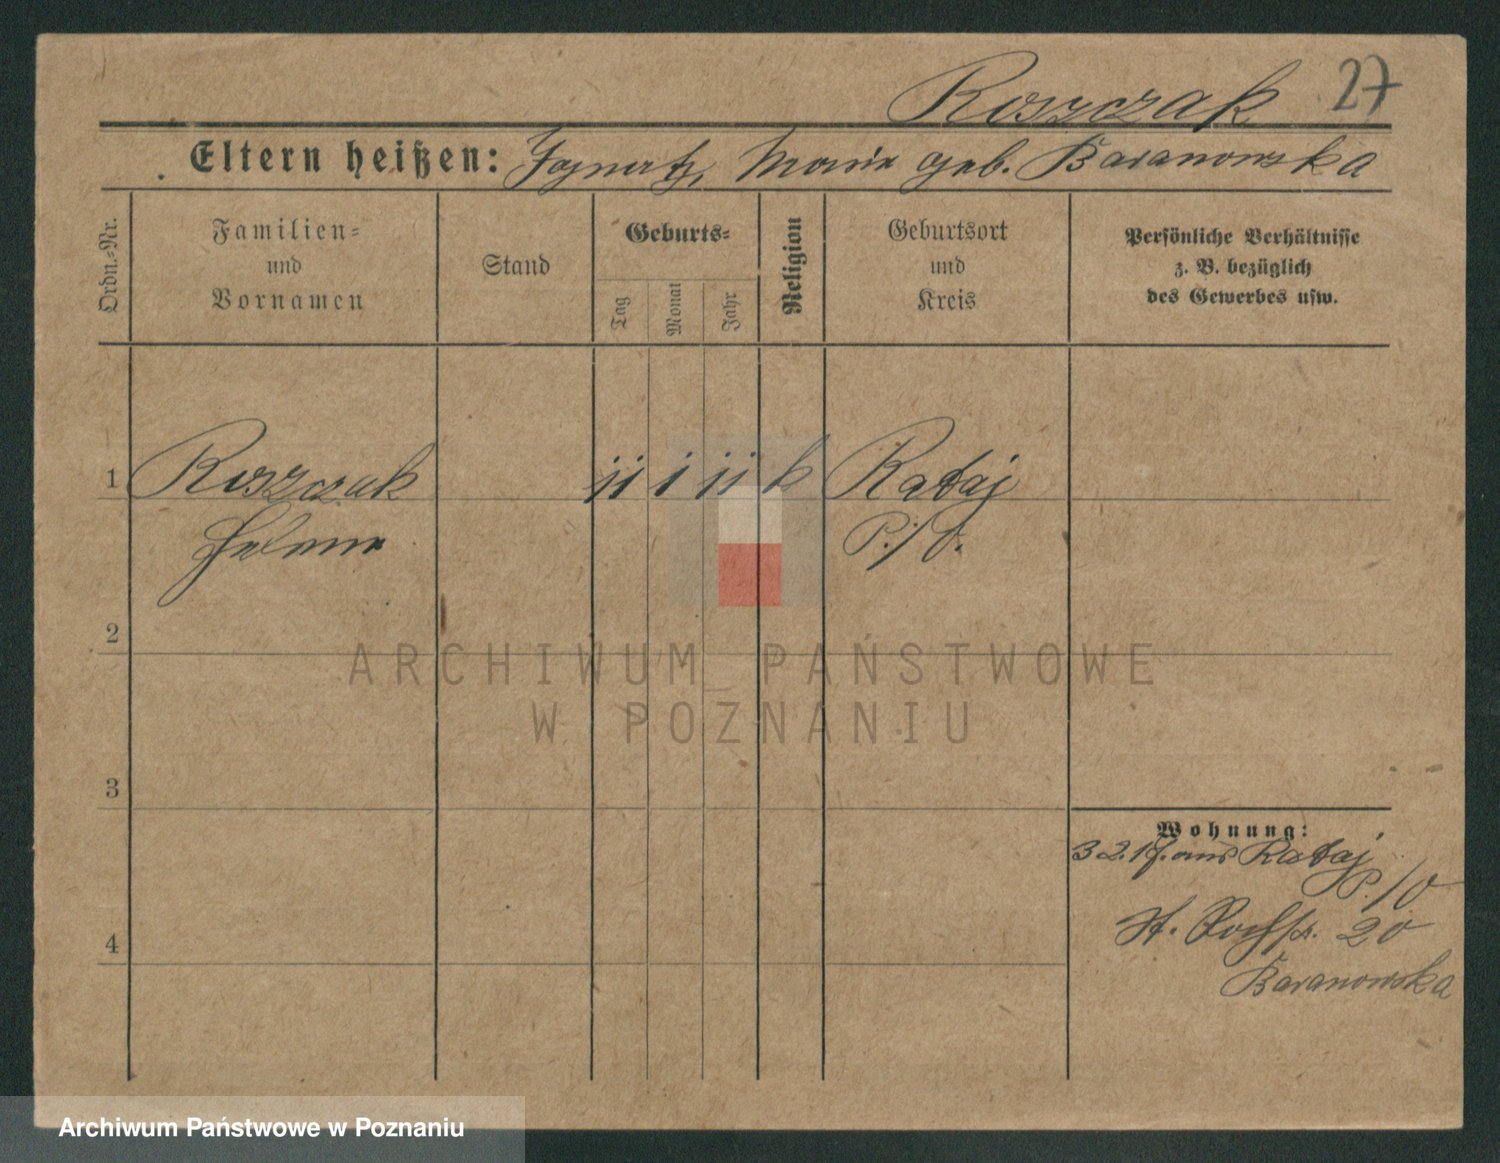 Roszczak 27
Eltern heißen: Ignatz, Marie geb. Baranowska
Ordn.-Nr.
Familien=
und
Vornamen
Stand
Geburts=
Tag
Monat
Jahr
Religion
Geburtsort
und
Kreis
Persönliche Verhältnisse
z. B. bezüglich
des Gewerbes usw.
1 Roszczak 11 1 11 k Rataj
Helene P./O.
2
3
4
Wohnung:
3.2.17. aus Rataj
P./O
St. Rochstr. 20
Baranowska
ARCHIWUM PAŃSTWOWE
W POZNANIU
Archiwum Państwowe w Poznaniu